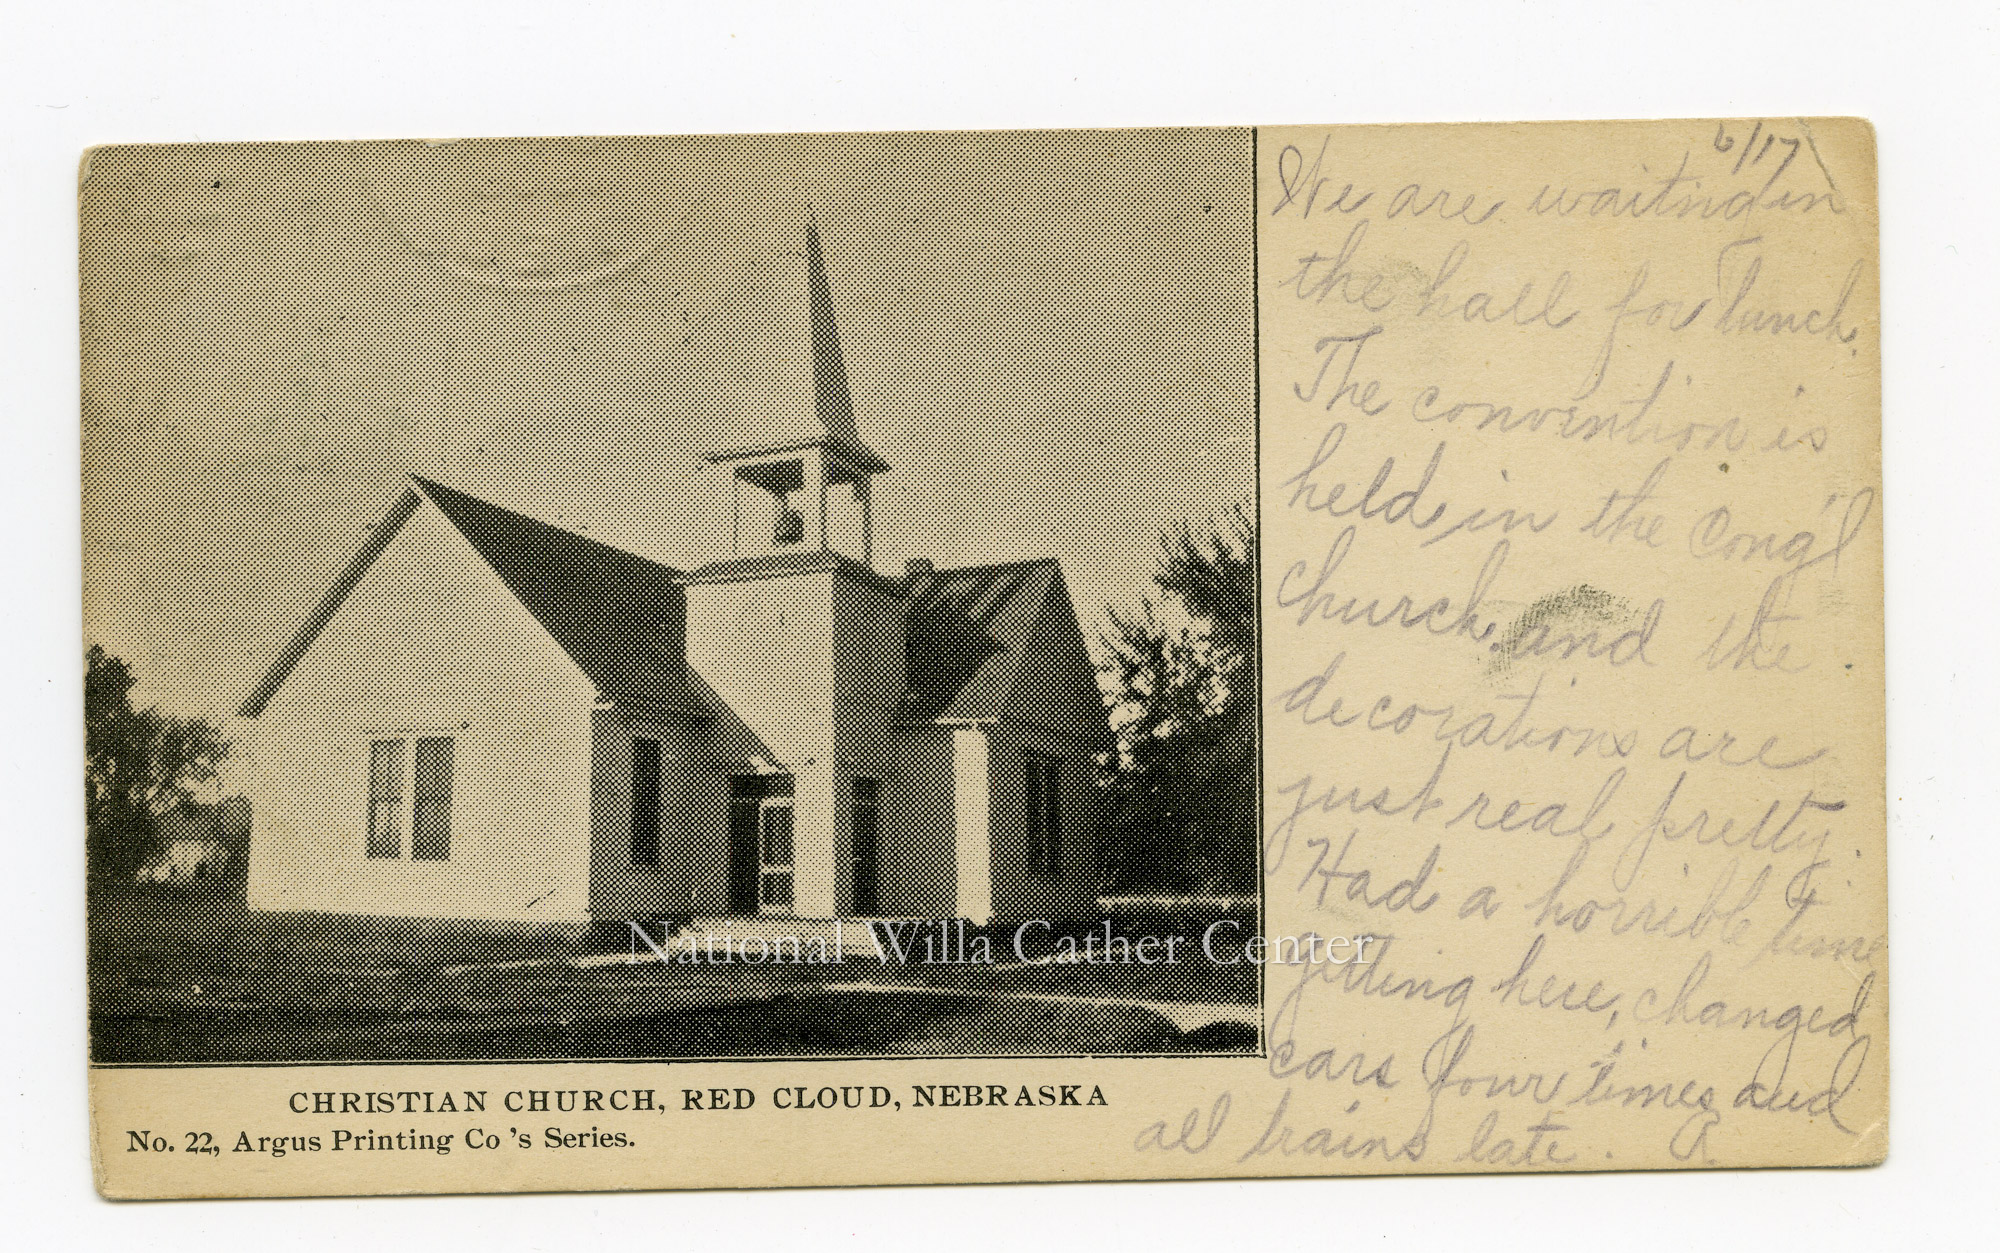 6/17
We are waiting in
the hall for lunch.
The convention is
held in the Cong'l
church. and the
decorations are
just real pretty.
Had a horrible time
getting here, changed
cars four times and
all trains late. R
National Willa Cather Center
CHRISTIAN CHURCH, RED CLOUD, NEBRASKA
No. 22, Argus Printing Co 's Series.